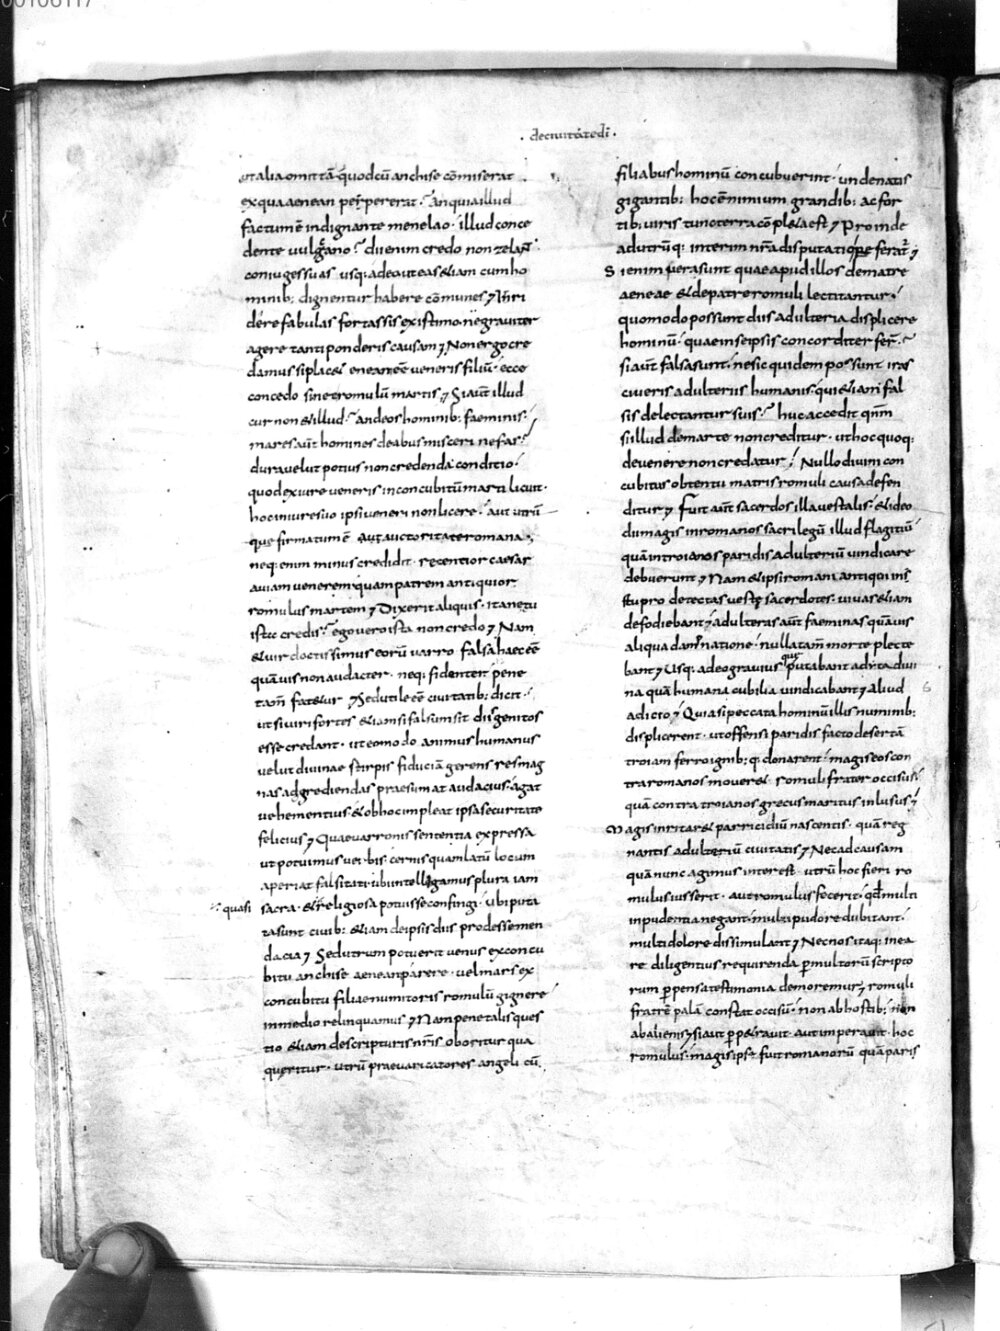 00106117
· deciuitatedi ·
&talia omittā quod cū anchise cōmiserat
ex qua aenean peperat. An quia illud
factum ē indignante menelao. illud conce
dente vulcano. dii enim credo non zelant
coniuges suas usq; adeo ut eas &iam cum ho
minib; dignentur habere cōmunes. Inri
dere fabulas fortassis existimor. neq grauiter
agere tanti ponderis causam. Non ergo cre
damus si plac& enean eē veneris filiū. ecce
concedo si nec romulū martis. Si aūt illud
cur non & illud. an deos hominib; faeminis.
mares aūt homines deabus misceri nefas.
dura uel ut potius non credenda conditio.
quod ex iure veneris in concubitū marti licuit.
hoc in iure suo ipsi veneri non licere. aut utrū
que firmatum ē auctoritate romana.
neq; enim minus credidit. recentior caesar
auiam venerem quam patrem antiquior
romulus martem. Dixerit aliquis. itane tu
ista credis. ego vero ista non credo. Nam
& uir doctissimus eorū varro falsa haec eē
quāuis non audacter. neq; fidenter pene
tam̄ fat&ur. Sed utile eē ciuitatib; dicit.
ut si uiri fortes &iam si falsum sit diis genitos
esse credant. ut eo modo animus humanus
velut diuinae stirpis fiduciā gerens res mag
nas adgrediendas praesumat audacius. agat
vehementius & ob hoc impleat ipsa securitate
felicius. Quae varronis sententia expressa
ut potui meis uerbis. cernis quam latū locum
aperiat falsitati. ubi intellegamus plura iam
quasi sacra. & religiosa potuisse confingi. ubi puta
ta sunt ciuib; &iam de ipsis diis prodesse men
dacia. Sed utrum potuerit venus ex concu
bitu anchise aenean parere. uel mars ex
concubitu filiae numitoris romulū gignere
in medio relinquamus. Nam pene talis ques
tio &iam de scripturis nr̄is oboritur qua
queritur. utrū praeuaricatores angeli cū
filiabus hominū concubuerint. unde natis
gigantib; hoc ē nimium grandib; ac for
tib; uiris tunc terra cōpl&a est. Proinde
ad utrūq; interim nr̄a disputatio referat̄
Si enim uera sunt quae apud illos de matre
aeneae & de patre romuli lectitantur.
quomodo possunt diis adulteria displicere
hominū. quae in se ipsis concorditer fer̄.
si aūt falsa sunt. ne sic quidem possunt irasci
ueris adulteriis humanis. qui &iam fal
sis delectantur suis. huc accedit qnm
si illud de marte non creditur. ut hoc quoq;
de venere non credatur. Nullo diuini con
cubitus obtentu matris romuli causa defen
ditur. Fuit aūt sacerdos illa vestalis. & ideo
dii magis in romanos sacrilegū illud flagitiū
quā in troianos paridis adulteriū uindicare
debuerunt. Nam & ipsi romani antiqui in
stupro detectas vestę sacerdotes. uiuas &iam
defodiebant. adulteras aūt faeminas quāuis
aliqua damnatione. nulla tam̄ morte plecte
bant. Usq; adeo grauius que putabant adyta diui
na quā humana cubilia uindicabant. aliud
adicio. Quia si peccata hominū illis numinib;
displicerent. ut offensi paridis facto desertā
troiam ferro ignib; q; donarent. magis eos con
tra romanos mouer& romuli frater occisus.
quā contra troianos grecus maritus inlusus.
Magis inritar& parricidiū nascentis. quā reg
nantis adulteriū ciuitatis. Nec ad causam
quā nunc agimus interest. utrū hoc fieri ro
mulus iusserit. aut romulus fecerit. qd̄ multi
inpudentia negant. multi pudore dubitant.
multi dolore dissimulant. Nec nos itaq; in ea
re diligentius requirenda. p multorū scripto
rum ppensa testimonia demoremur. romuli
fratrē palā constat occisū. non ab hostib; non
ab alienis. si aut pp&rauit. aut imperauit. hoc
romulus. magis ipse fuit romanorū quā paris